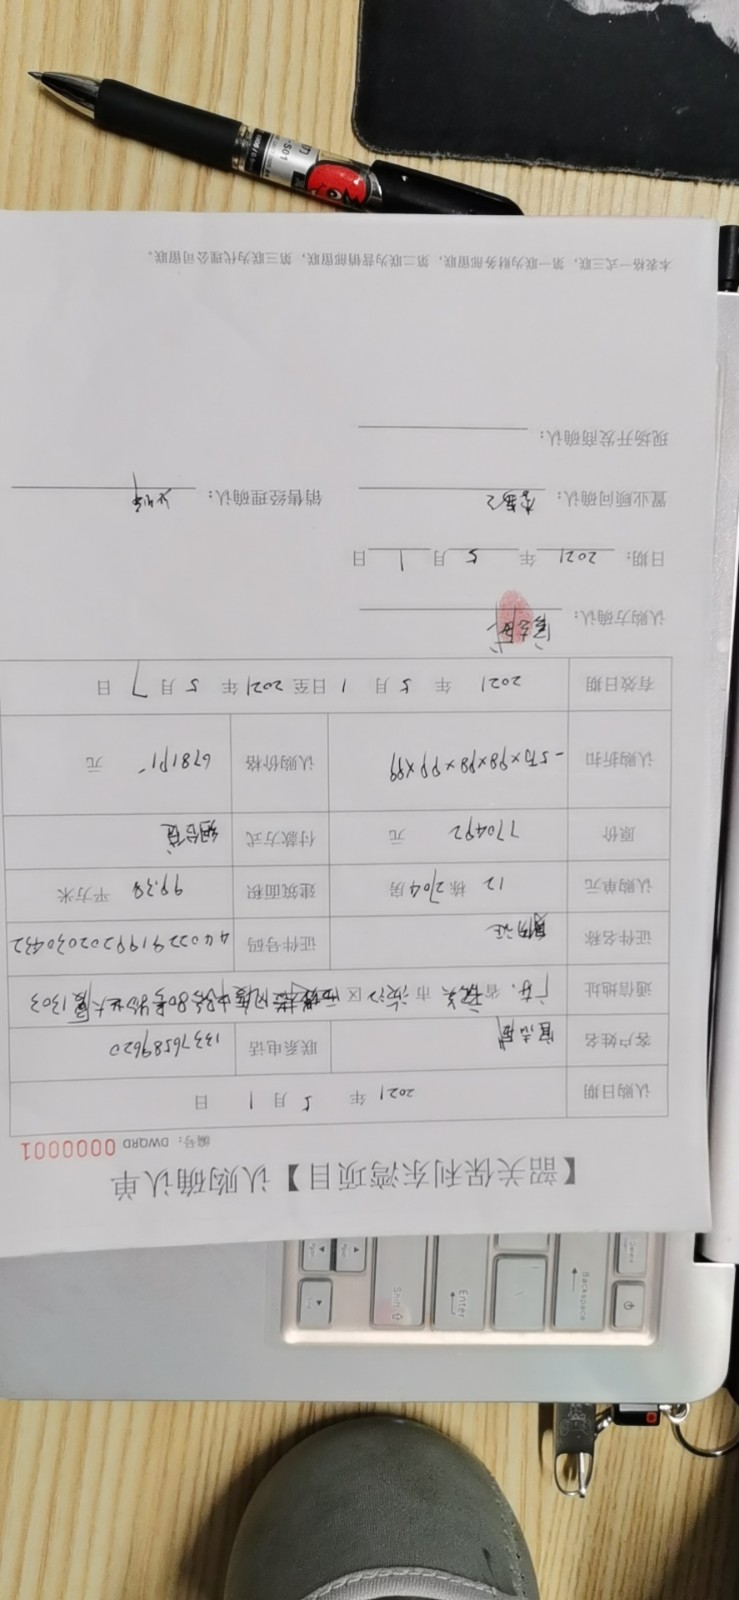 【韶关保利东湾项目】认购确认单
编号：DWQRD 0000001
认购日期 2021 年 5 月 1 日
客户姓名 联系电话 13376589620
通信地址 广东 省 韶关 市 浈江 区 风度中路80号 大厦1303
证件名称 身份证 证件号码 440229199202030432
认购单元 12 栋 2704 房 建筑面积 99.38 平方米
原价 770492 元 付款方式 组合贷
认购折扣 -5万×98×98×99×99 认购价格 678191 元
有效日期 2021 年 5 月 1 日至 2021 年 5 月 7 日
认购方确认：
日期： 2021 年 5 月 1 日
置业顾问确认： 销售经理确认：
现场开发商确认：
本表格一式三联，第一联为财务部留联，第二联为营销部留联，第三联为代理公司留联。
Backspace
Enter
Shift
S01